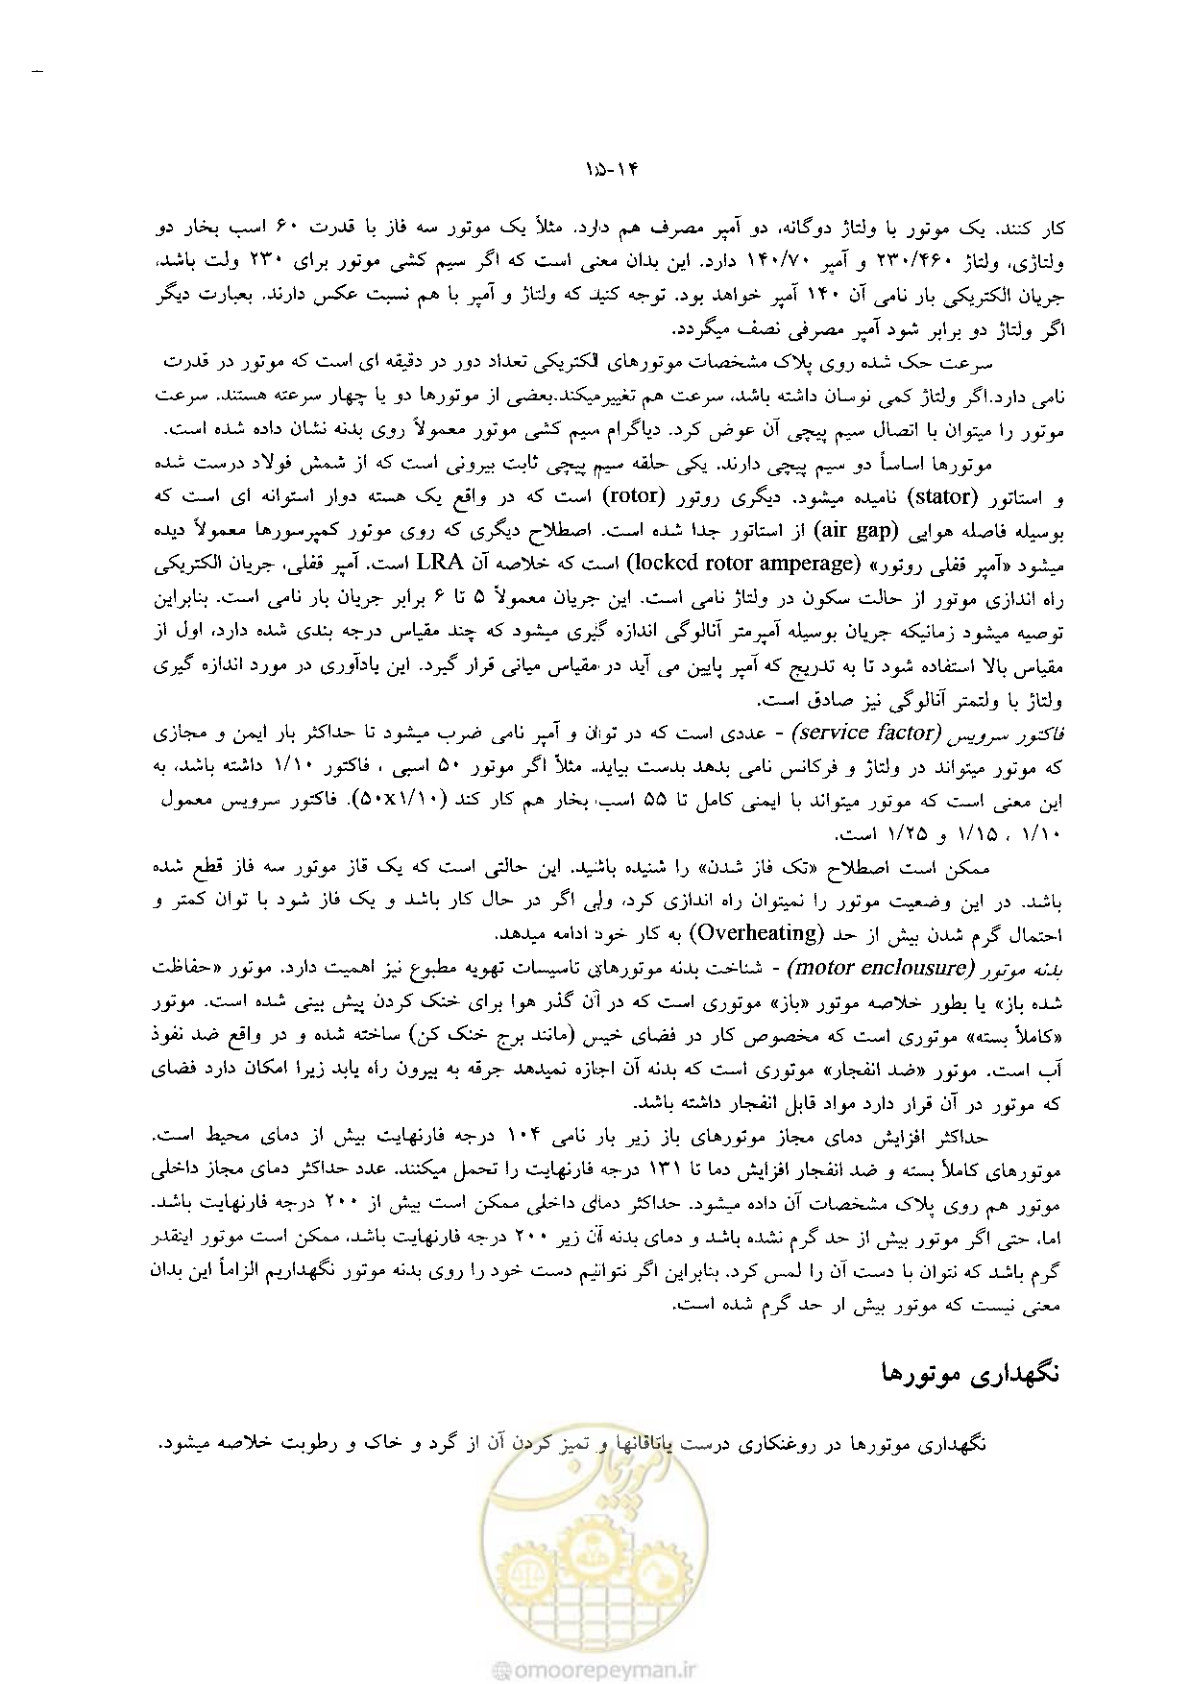 ۱۵-۱۴
کار کنند. یک موتور با ولتاژ دوگانه، دو آمپر مصرف هم دارد. مثلاً یک موتور سه فاز با قدرت ۶۰ اسب بخار دو
ولتاژی، ولتاژ ۲۳۰/۴۶۰ و آمپر ۱۴۰/۷۰ دارد. این بدان معنی است که اگر سیم کشی موتور برای ۲۳۰ ولت باشد،
جریان الکتریکی بار نامی آن ۱۴۰ آمپر خواهد بود. توجه کنید که ولتاژ و آمپر با هم نسبت عکس دارند. بعبارت دیگر
اگر ولتاژ دو برابر شود آمپر مصرفی نصف میگردد.
سرعت حک شده روی پلاک مشخصات موتورهای الکتریکی تعداد دور در دقیقه ای است که موتور در قدرت
نامی دارد.اگر ولتاژ کمی نوسان داشته باشد، سرعت هم تغییرمیکند.بعضی از موتورها دو یا چهار سرعته هستند. سرعت
موتور را میتوان با اتصال سیم پیچی آن عوض کرد. دیاگرام سیم کشی موتور معمولاً روی بدنه نشان داده شده است.
موتورها اساساً دو سیم پیچی دارند. یکی حلقه سیم پیچی ثابت بیرونی است که از شمش فولاد درست شده
و استاتور (stator) نامیده میشود. دیگری روتور (rotor) است که در واقع یک هسته دوار استوانه ای است که
بوسیله فاصله هوایی (air gap) از استاتور جدا شده است. اصطلاح دیگری که روی موتور کمپرسورها معمولاً دیده
میشود «آمپر قفلی روتور» (locked rotor amperage) است که خلاصه آن LRA است. آمپر قفلی، جریان الکتریکی
راه اندازی موتور از حالت سکون در ولتاژ نامی است. این جریان معمولاً ۵ تا ۶ برابر جریان بار نامی است. بنابراین
توصیه میشود زمانیکه جریان بوسیله آمپرمتر آنالوگی اندازه گیری میشود که چند مقیاس درجه بندی شده دارد، اول از
مقیاس بالا استفاده شود تا به تدریج که آمپر پایین می آید در مقیاس میانی قرار گیرد. این یادآوری در مورد اندازه گیری
ولتاژ با ولتمتر آنالوگی نیز صادق است.
فاکتور سرویس (service factor) - عددی است که در توان و آمپر نامی ضرب میشود تا حداکثر بار ایمن و مجازی
که موتور میتواند در ولتاژ و فرکانس نامی بدهد بدست بیاید. مثلاً اگر موتور ۵۰ اسبی ، فاکتور ۱/۱۰ داشته باشد، به
این معنی است که موتور میتواند با ایمنی کامل تا ۵۵ اسب بخار هم کار کند (۵۰x۱/۱۰). فاکتور سرویس معمول
۱/۱۰ ، ۱/۱۵ و ۱/۲۵ است.
ممکن است اصطلاح «تک فاز شدن» را شنیده باشید. این حالتی است که یک قاز موتور سه فاز قطع شده
باشد. در این وضعیت موتور را نمیتوان راه اندازی کرد، ولی اگر در حال کار باشد و یک فاز شود با توان کمتر و
احتمال گرم شدن بیش از حد (Overheating) به کار خود ادامه میدهد.
بدنه موتور (motor enclousure) - شناخت بدنه موتورهای تاسیسات تهویه مطبوع نیز اهمیت دارد. موتور «حفاظت
شده باز» یا بطور خلاصه موتور «باز» موتوری است که در آن گذر هوا برای خنک کردن پیش بینی شده است. موتور
«کاملاً بسته» موتوری است که مخصوص کار در فضای خیس (مانند برج خنک کن) ساخته شده و در واقع ضد نفوذ
آب است. موتور «ضد انفجار» موتوری است که بدنه آن اجازه نمیدهد جرقه به بیرون راه یابد زیرا امکان دارد فضای
که موتور در آن قرار دارد مواد قابل انفجار داشته باشد.
حداکثر افزایش دمای مجاز موتورهای باز زیر بار نامی ۱۰۴ درجه فارنهایت بیش از دمای محیط است.
موتورهای کاملاً بسته و ضد انفجار افزایش دما تا ۱۳۱ درجه فارنهایت را تحمل میکنند. عدد حداکثر دمای مجاز داخلی
موتور هم روی پلاک مشخصات آن داده میشود. حداکثر دمای داخلی ممکن است بیش از ۲۰۰ درجه فارنهایت باشد.
اما، حتی اگر موتور بیش از حد گرم نشده باشد و دمای بدنه آن زیر ۲۰۰ درجه فارنهایت باشد، ممکن است موتور اینقدر
گرم باشد که نتوان با دست آن را لمس کرد. بنابراین اگر نتوانیم دست خود را روی بدنه موتور نگهداریم الزاماً این بدان
معنی نیست که موتور بیش ار حد گرم شده است.
نگهداری موتورها
نگهداری موتورها در روغنکاری درست یاتاقانها و تمیز کردن آن از گرد و خاک و رطوبت خلاصه میشود.
امور پیمان
@omoorepeyman.ir